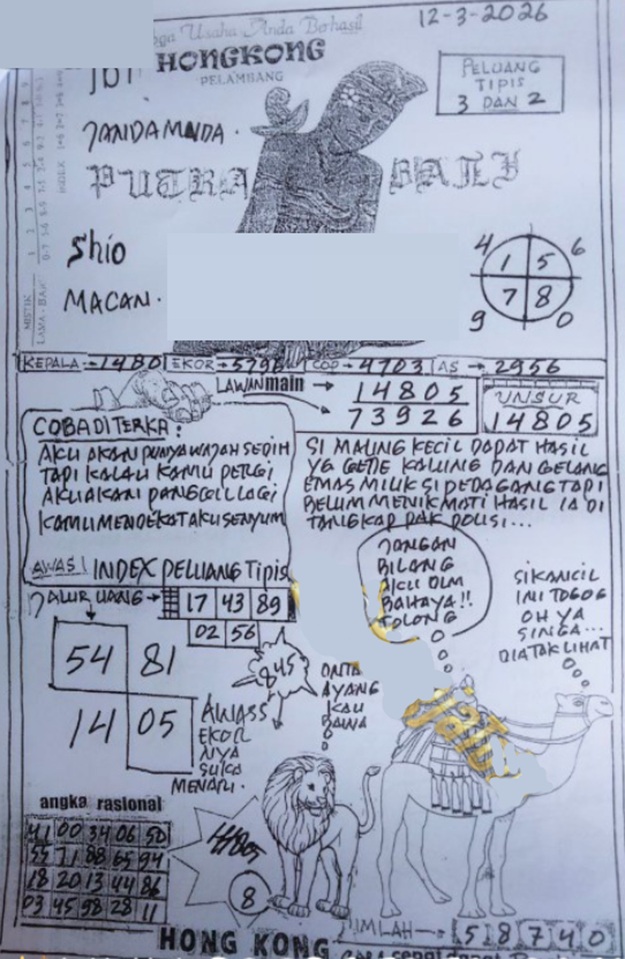 oga Usaha Anda Berhasil
12-3-2026
HONGKONG
PELAMBANG
PELUANG
TIPIS
3 DAN 2
JANDA MUDA.
PUTRA BALI
Shio
MACAN.
4 6
1 5
7 8
9 0
KEPALA → 1480 EKOR → 5796 COP → 4703 AS → 2956
LAWAN main → 14805
73926
UNSUR
14805
COBA DITERKA:
AKU AKAN PUNYA WAJAH SEDIH
TAPI KALAU KAMU PERGI
AKU AKAN PANGGIL LAGI
KAMU MENDEKAT AKU SENYUM
SI MALING KECIL DAPAT HASIL
YG GEDE KALUNG DAN GELANG
EMAS MILIK SI PEDAGANG TAPI
BELUM MENIKMATI HASIL IA DI
TANGKAP PAK POLISI...
AWAS! INDEX PELUANG Tipis
JALUR UANG → 17 43 89
02 56
54 81
14 05
845
AWASS
EKOR
NYA
SUKA
MENARI.
JANGAN
BILANG
AKU DLM
BAHAYA!!
TOLONG
SI KANCIL
INI TOGOG
OH YA
SINGA...
DIA TAK LIHAT
ONTA
AYANG
KAU
BAWA
angka rasional
41 00 34 06 50
55 71 88 65 94
18 20 13 44 86
03 45 98 28 11
8
JUMLAH → 58740
HONG KONG